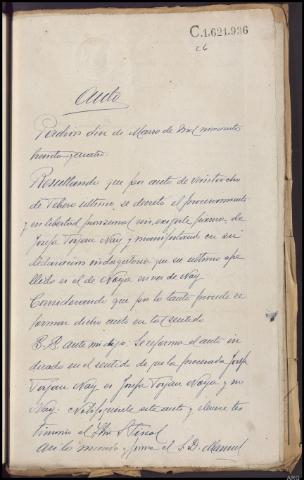 C.1.621.936
26
Auto
Verdun diez de Marzo de mil novecientos
treinta y cuatro.
Resultando que por auto de veintiocho
de Febrero último, se decretó el procesamiento
y en libertad provisional sin exigirle fianza, de
Josefa Torján Nay y manifestando en su
declaración indagatoria que su último ape-
llido es el de Noya en vez de Nay
Considerando que por lo tanto procede re-
formar dicho auto en tal sentido
S.S. ante mi dijo: Se reforma el auto in-
dicado en el sentido de que la procesada Josefa
Torján Nay es Josefa Torján Noya y no
Nay. Notifíquese este auto y elévese tes-
timonio al Ilmo Sr Fiscal
Así lo mandó y firma el S. D. Manuel